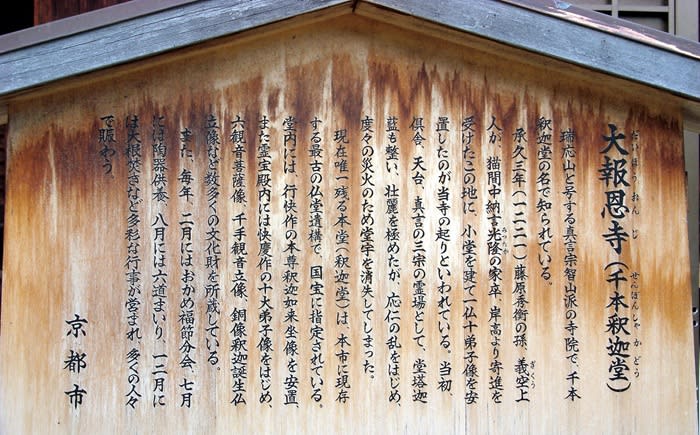 大報恩寺(千本釈迦堂)
だいほうおんじ せんぼんしゃかどう
瑞応山と号する真言宗智山派の寺院で、千本
釈迦堂の名で知られている。
承久三年(一二二一)藤原秀衡の孫、義空上
ぎくう
人が、猫間中納言光隆の家卒、岸高より寄進を
みつたか
受けたこの地に、小堂を建て一仏十弟子像を安
置したのが当寺の起りといわれている。当初、
倶舎、天台、真言の三宗の霊場として、堂塔迦
藍も整い、壮麗を極めたが、応仁の乱をはじめ、
度々の災火のため堂宇を消失してしまった。
現在唯一残る本堂(釈迦堂)は、本市に現存
する最古の仏堂遺構で、国宝に指定されている。
堂内には、行快作の本尊釈迦如来坐像を安置、
また霊宝殿内には快慶作の十大弟子像をはじめ、
六観音菩薩像、千手観音立像、銅像釈迦誕生仏
立像など数多くの文化財を所蔵している。
また、毎年、二月にはおかめ福節分会、七月
には陶器供養、八月には六道まいり、一二月に
は大根焚きなど多彩な行事が営まれ、多くの人々
で賑わう。
京都市